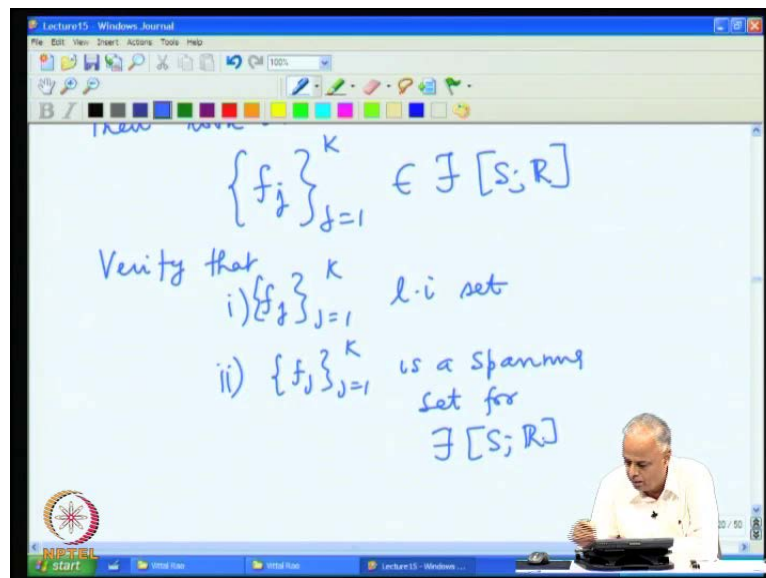 Lecture15 - Windows Journal
File Edit View Insert Actions Tools Help
100%
B I
{f_j}_{j=1}^K ∈ F [S; R]
Verify that
i) {f_j}_{j=1}^K l.i set
ii) {f_j}_{j=1}^K is a spanning
set for
F [S; R]
20 / 50
NPTEL
start Vittal Rao Vittal Rao Lecture15 - Windows ...